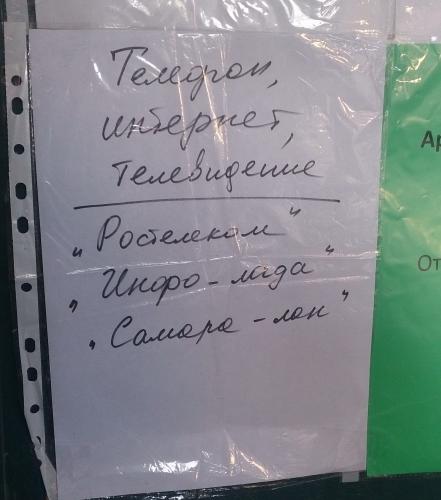 Телефон,
интернет,
телевидение
„Ростелеком"
„Инфо-лада"
„Самара-лан"
Ар
От